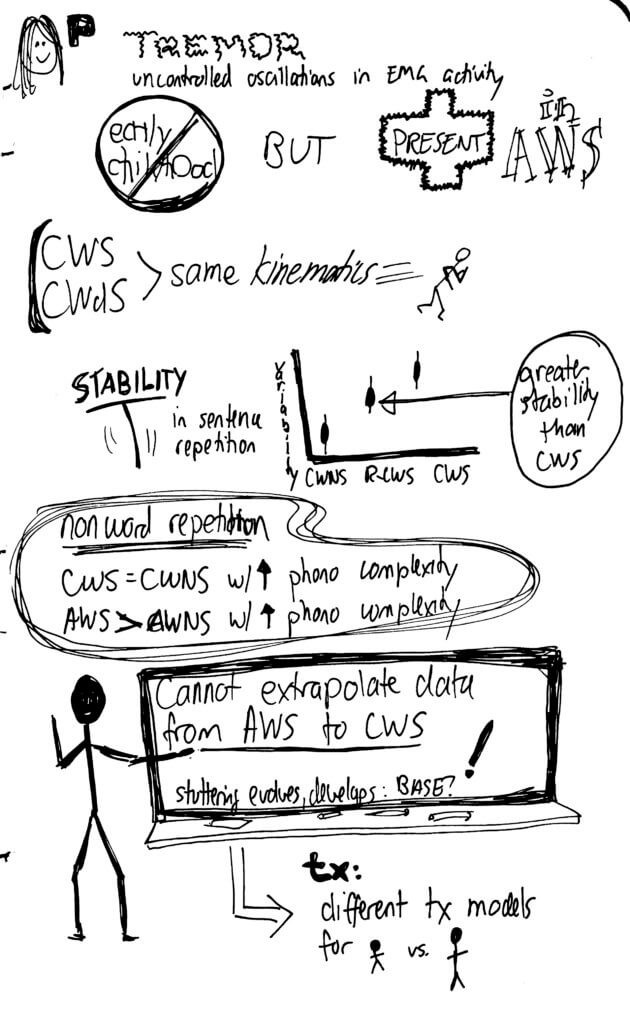 P
TREMOR
uncontrolled oscillations in EMG activity
early childhood
BUT
PRESENT
in
AWS
CWS
CWdS > same kinematics
STABILITY
in sentence
repetition
variability
CWNS R-CWS CWS
greater
stability
than
CWS
nonword repetition
CWS = CWNS w/ ↑ phono complexity
AWS > AWNS w/ ↑ phono complexity
Cannot extrapolate data
from AWS to CWS
!
stuttering evolves, develops: BASE?
tx:
different tx models
for vs.